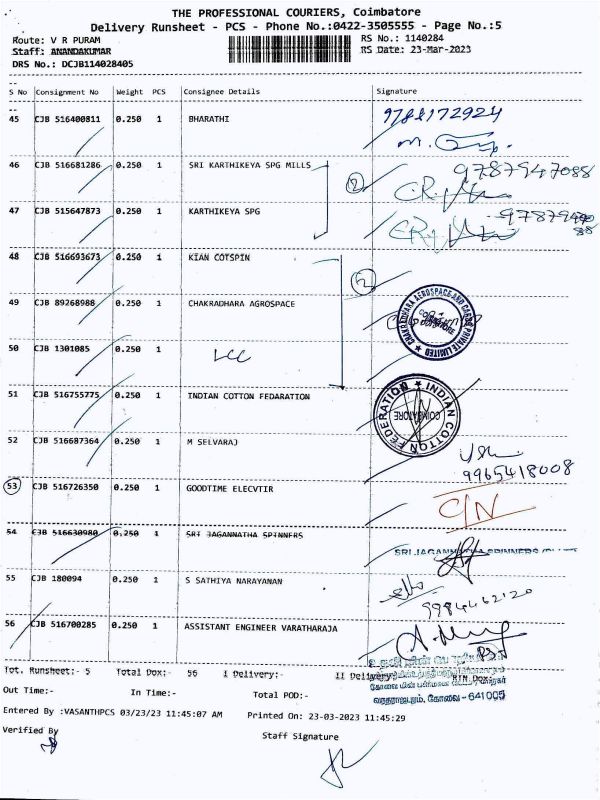 THE PROFESSIONAL COURIERS, Coimbatore
Delivery Runsheet - PCS - Phone No.:0422-3505555 - Page No.:5
Route: V R PURAM RS No.: 1140284
Staff: ANANDAKUMAR RS Date: 23-Mar-2023
DRS No.: DCJB114028405
S No Consignment No Weight PCS Consignee Details Signature
45 CJB 516400811 0.250 1 BHARATHI 9788172924
46 CJB 516681286 0.250 1 SRI KARTHIKEYA SPG MILLS 2 9787947088
47 CJB 515647873 0.250 1 KARTHIKEYA SPG
48 CJB 516693673 0.250 1 KIAN COTSPIN 2
49 CJB 89268988 0.250 1 CHAKRADHARA AGROSPACE
CHAKRADHARA AEROSPACE AND CARGO PRIVATE LIMITED
50 CJB 1301085 0.250 1 LCC
51 CJB 516755775 0.250 1 INDIAN COTTON FEDARATION
INDIAN COTTON FEDERATION
COIMBATORE
52 CJB 516687364 0.250 1 M SELVARAJ
9965418008
53 CJB 516726350 0.250 1 GOODTIME ELECVTIR C/N
54 CJB 516630980 0.250 1 SRI JAGANNATHA SPINNERS
SRI JAGANNATHA SPINNERS
55 CJB 180094 0.250 1 S SATHIYA NARAYANAN
9984462120
56 CJB 516700285 0.250 1 ASSISTANT ENGINEER VARATHARAJA
Tot. Runsheet:- 5 Total Dox:- 56 1 Delivery:- 11 Delivery: RTN Dox:
வரதராஜபுரம், கோவை - 641005
Out Time:- In Time:- Total POD:-
Entered By :VASANTHPCS 03/23/23 11:45:07 AM Printed On: 23-03-2023 11:45:29
Verified By Staff Signature